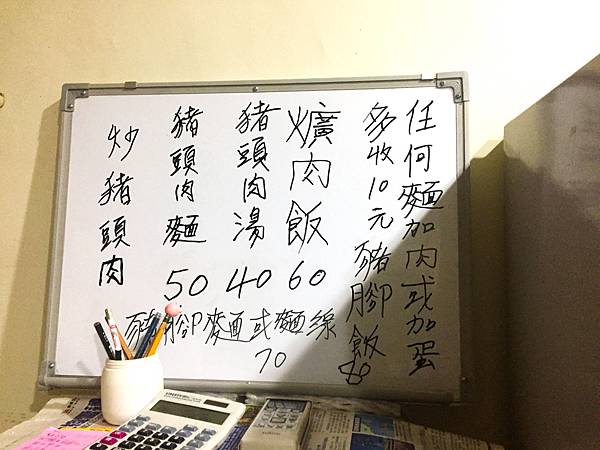 任何麵加肉或加蛋
多收10元 豬腳飯 80
爌肉飯 60
豬頭肉湯 40
豬頭肉麵 50
炒豬頭肉
豬腳麵或麵線 70